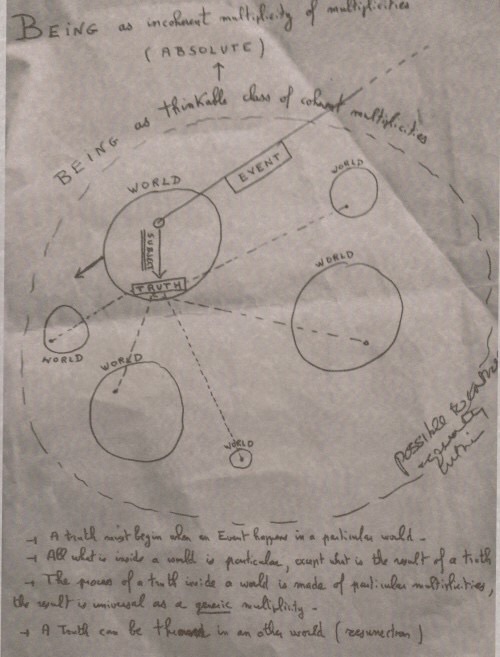 BEING as incoherent multiplicity of multiplicities
(ABSOLUTE)
BEING as thinkable class of coherent multiplicities
WORLD
EVENT
WORLD
SUBJECT
TRUTH
WORLD
WORLD
WORLD
WORLD
possible to
→ A truth must begin when an Event happens in a particular world -
→ All what is inside a world is particular, except what is the result of a truth
→ The process of a truth inside a world is made of particular multiplicities,
the result is universal as a generic multiplicity -
→ A Truth can be in an other world (resurrection)